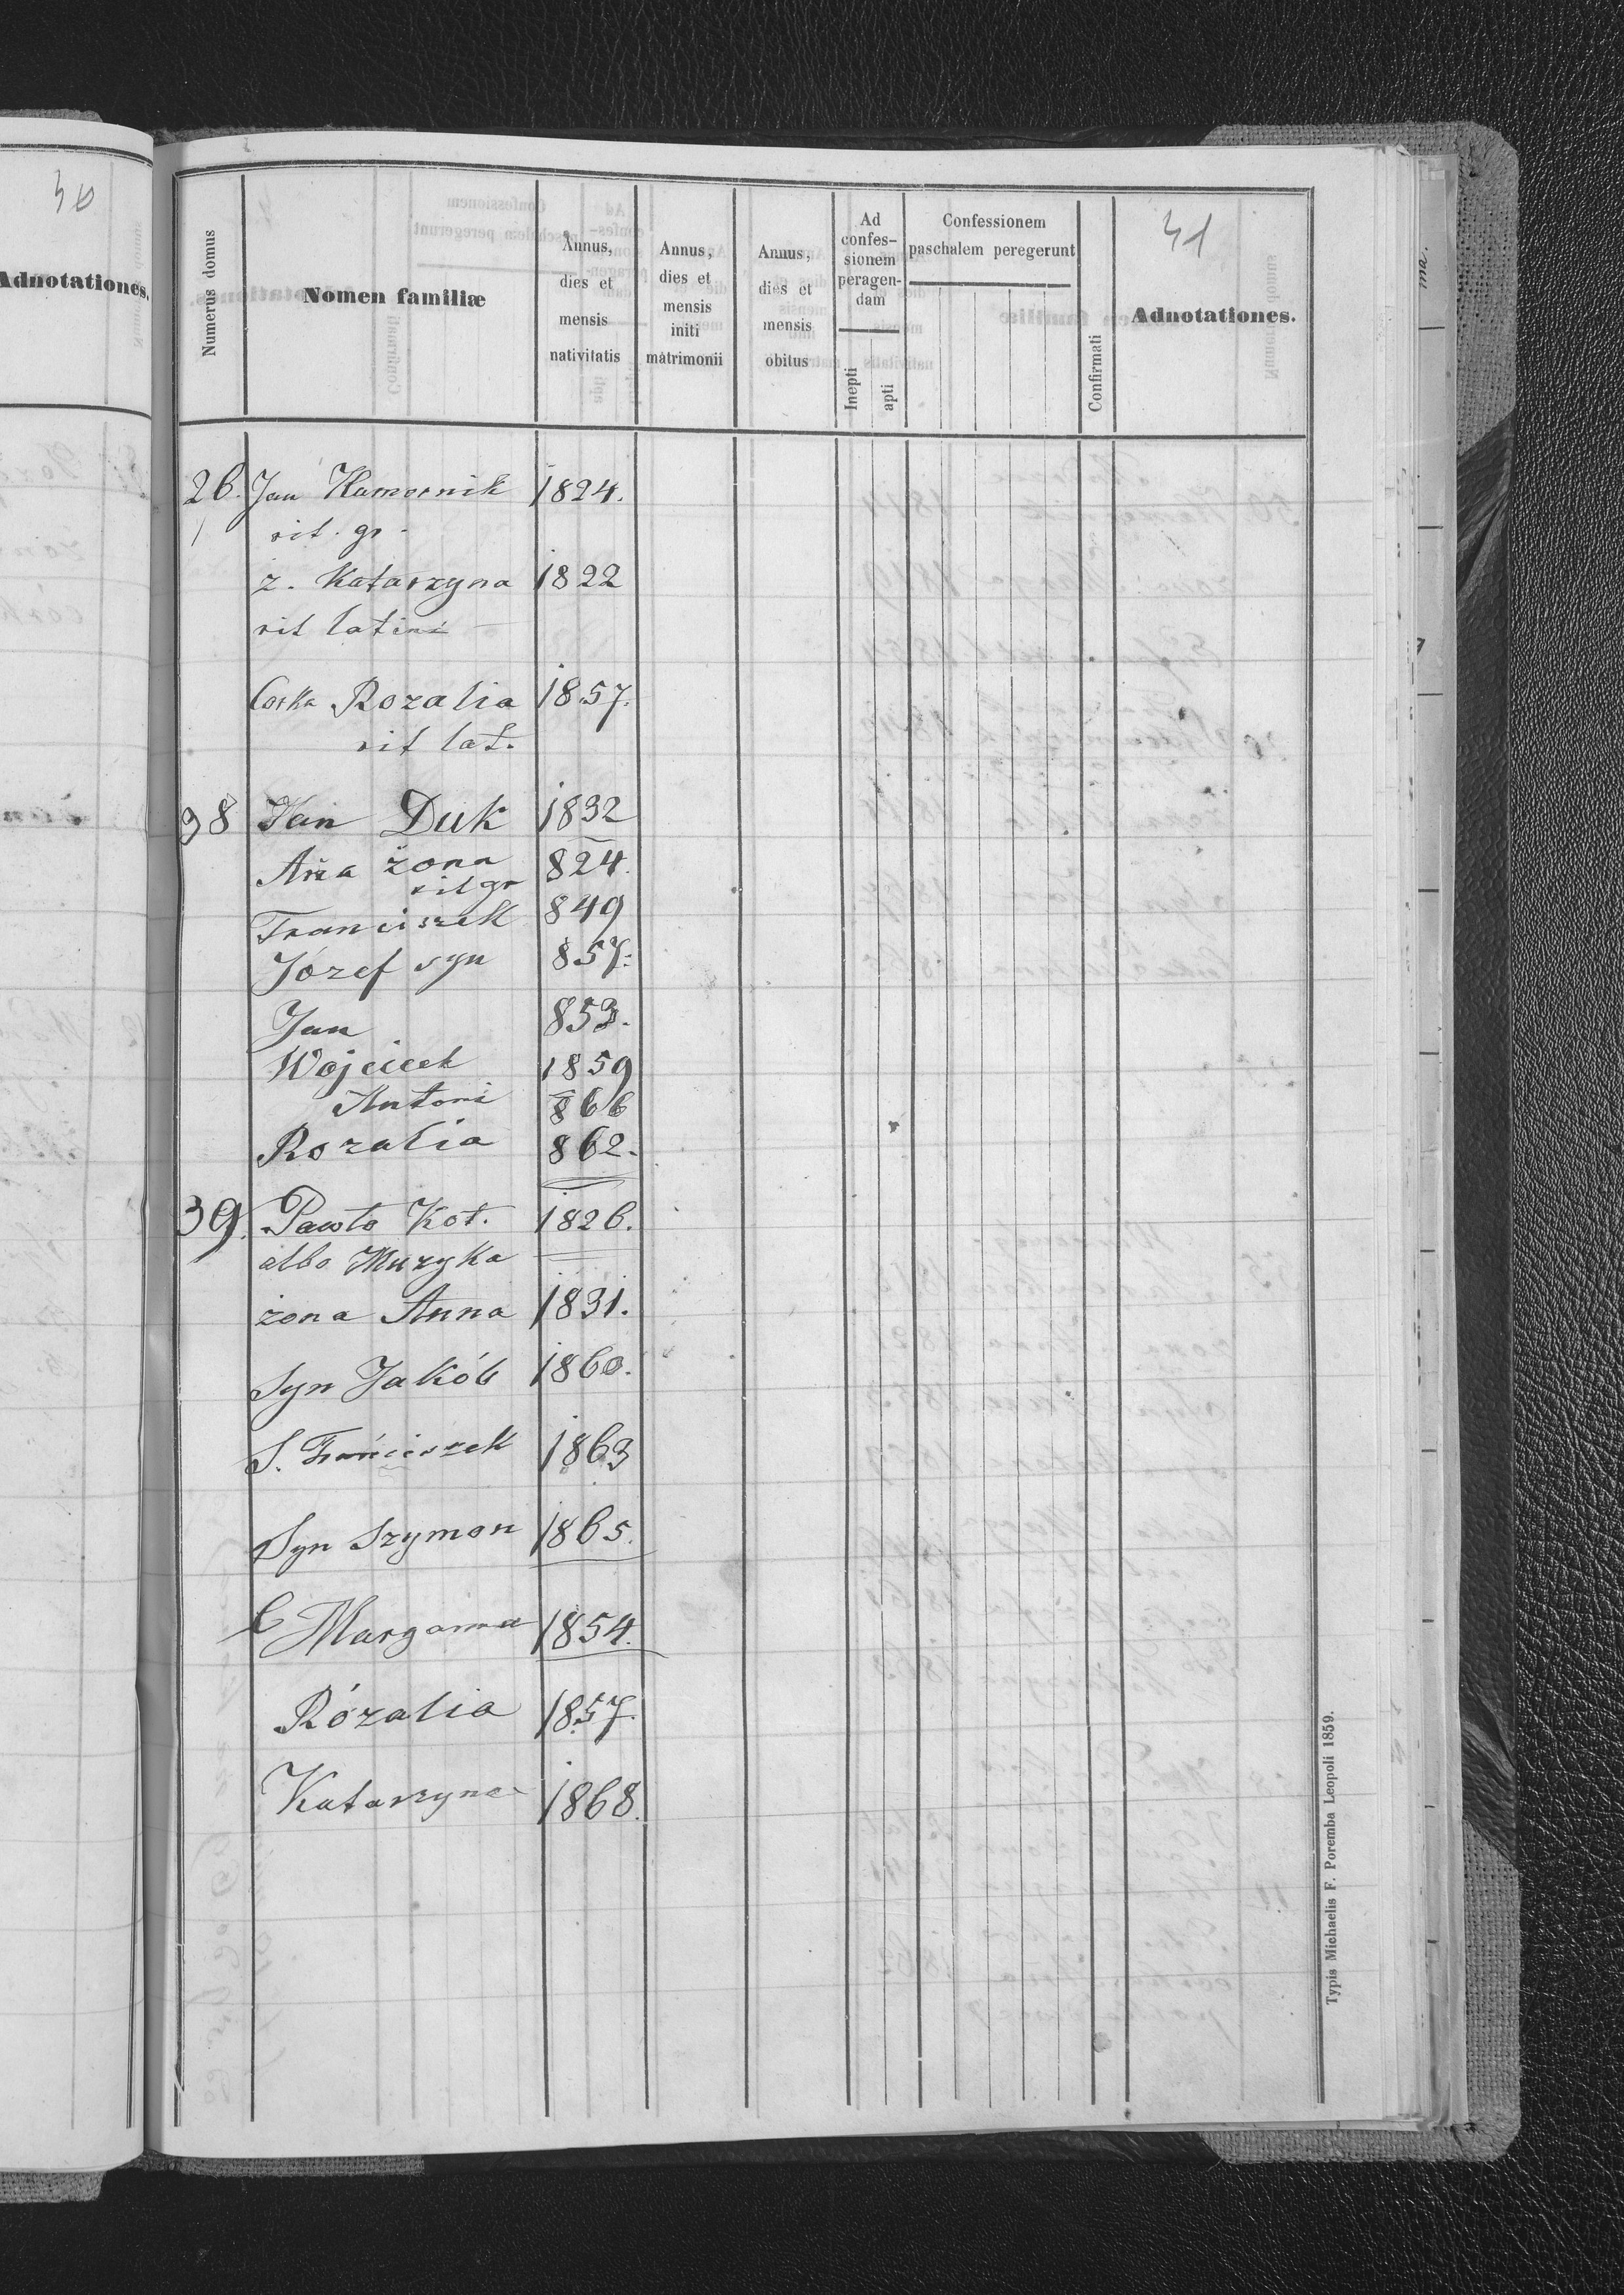 30
Adnotationes.
41
Numerus domus
Nomen familiæ
Annus, dies et mensis nativitatis
Annus, dies et mensis initi matrimonii
Annus, dies et mensis obitus
Ad confes-sionem peragen-dam
Inepti
apti
Confessionem paschalem peregerunt
Confirmati
Adnotationes.
26. Jan Hamernik 1824.
rit. gr.
z. Katarzyna 1822
rit latini
Corka Rozalia 1857.
rit lat.
38 Jan Duk 1832
Ana żona 824.
rit gr
Franciszek 849
Józef syn 857.
Jan 853.
Wojciech 1859
Antoni 866
Rozalia 862.
39. Pawło Kot. 1826.
albo Muzyka
żona Anna 1831.
Syn Jakób 1860.
S. Franciszek 1863
Syn Szymon 1865.
C 1854.
Rózalia 1857.
Katarzyna 1868.
Typis Michaelis F. Poremba Leopoli 1859.